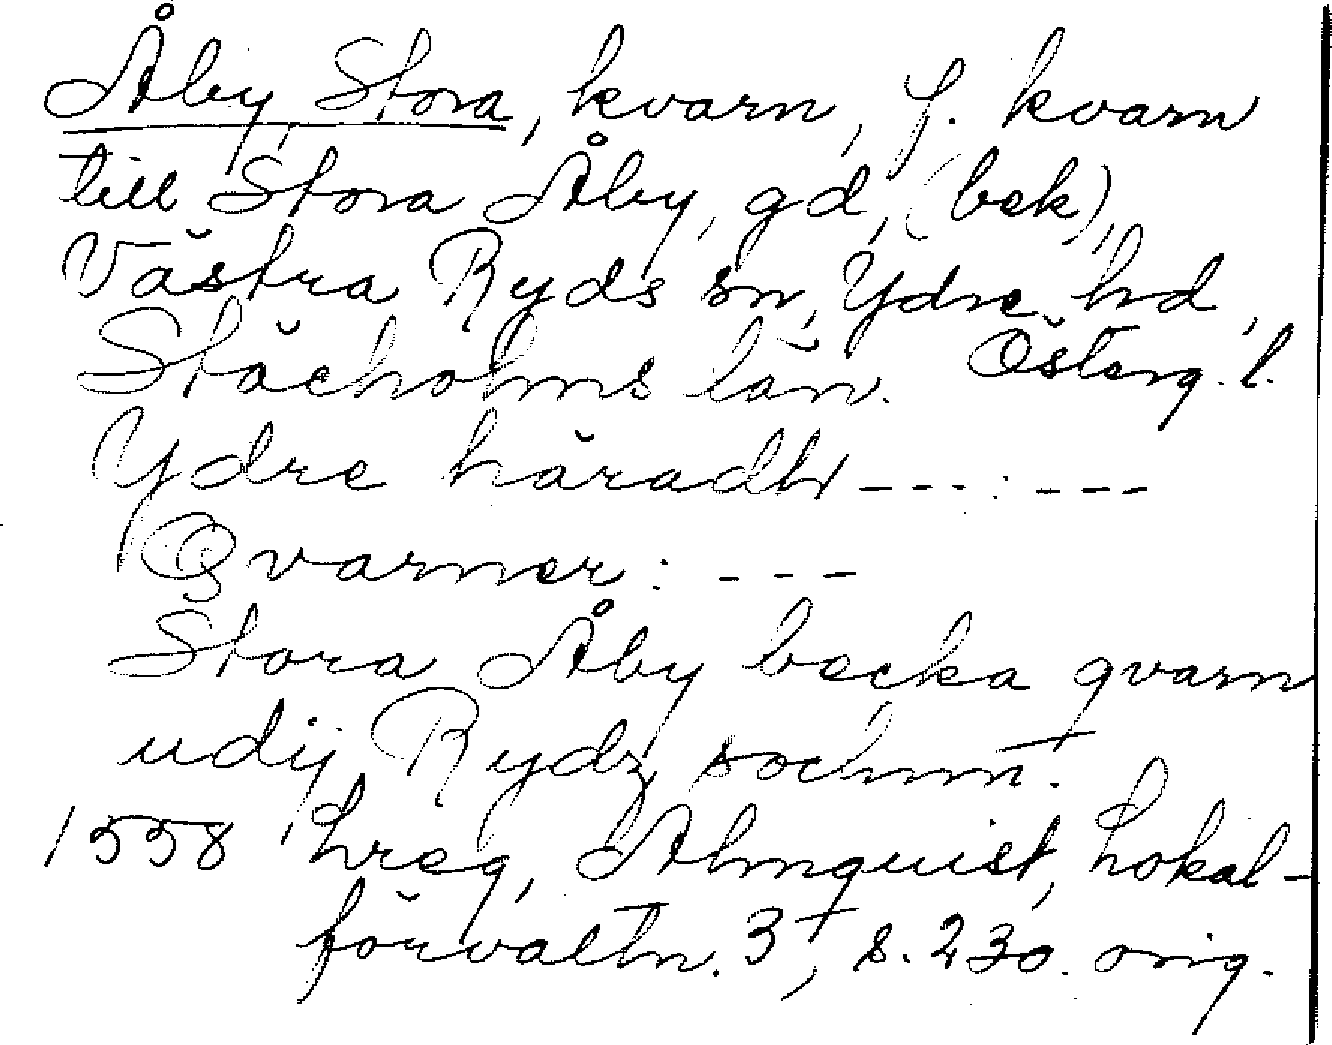 Åby, Stora, kvarn, f. kvarn
till Stora Åby, gd, (bek),
Västra Ryds sn, Ydre hd,
Österg. l.
Stächolms län.
Ydre häradh ---:---
Qvarner: ---
Stora Åby becka qvarn
udij Rydz sochnn.
1558 hreg, Almquist, Lokal-
förvaltn. 3, s. 230. orig.